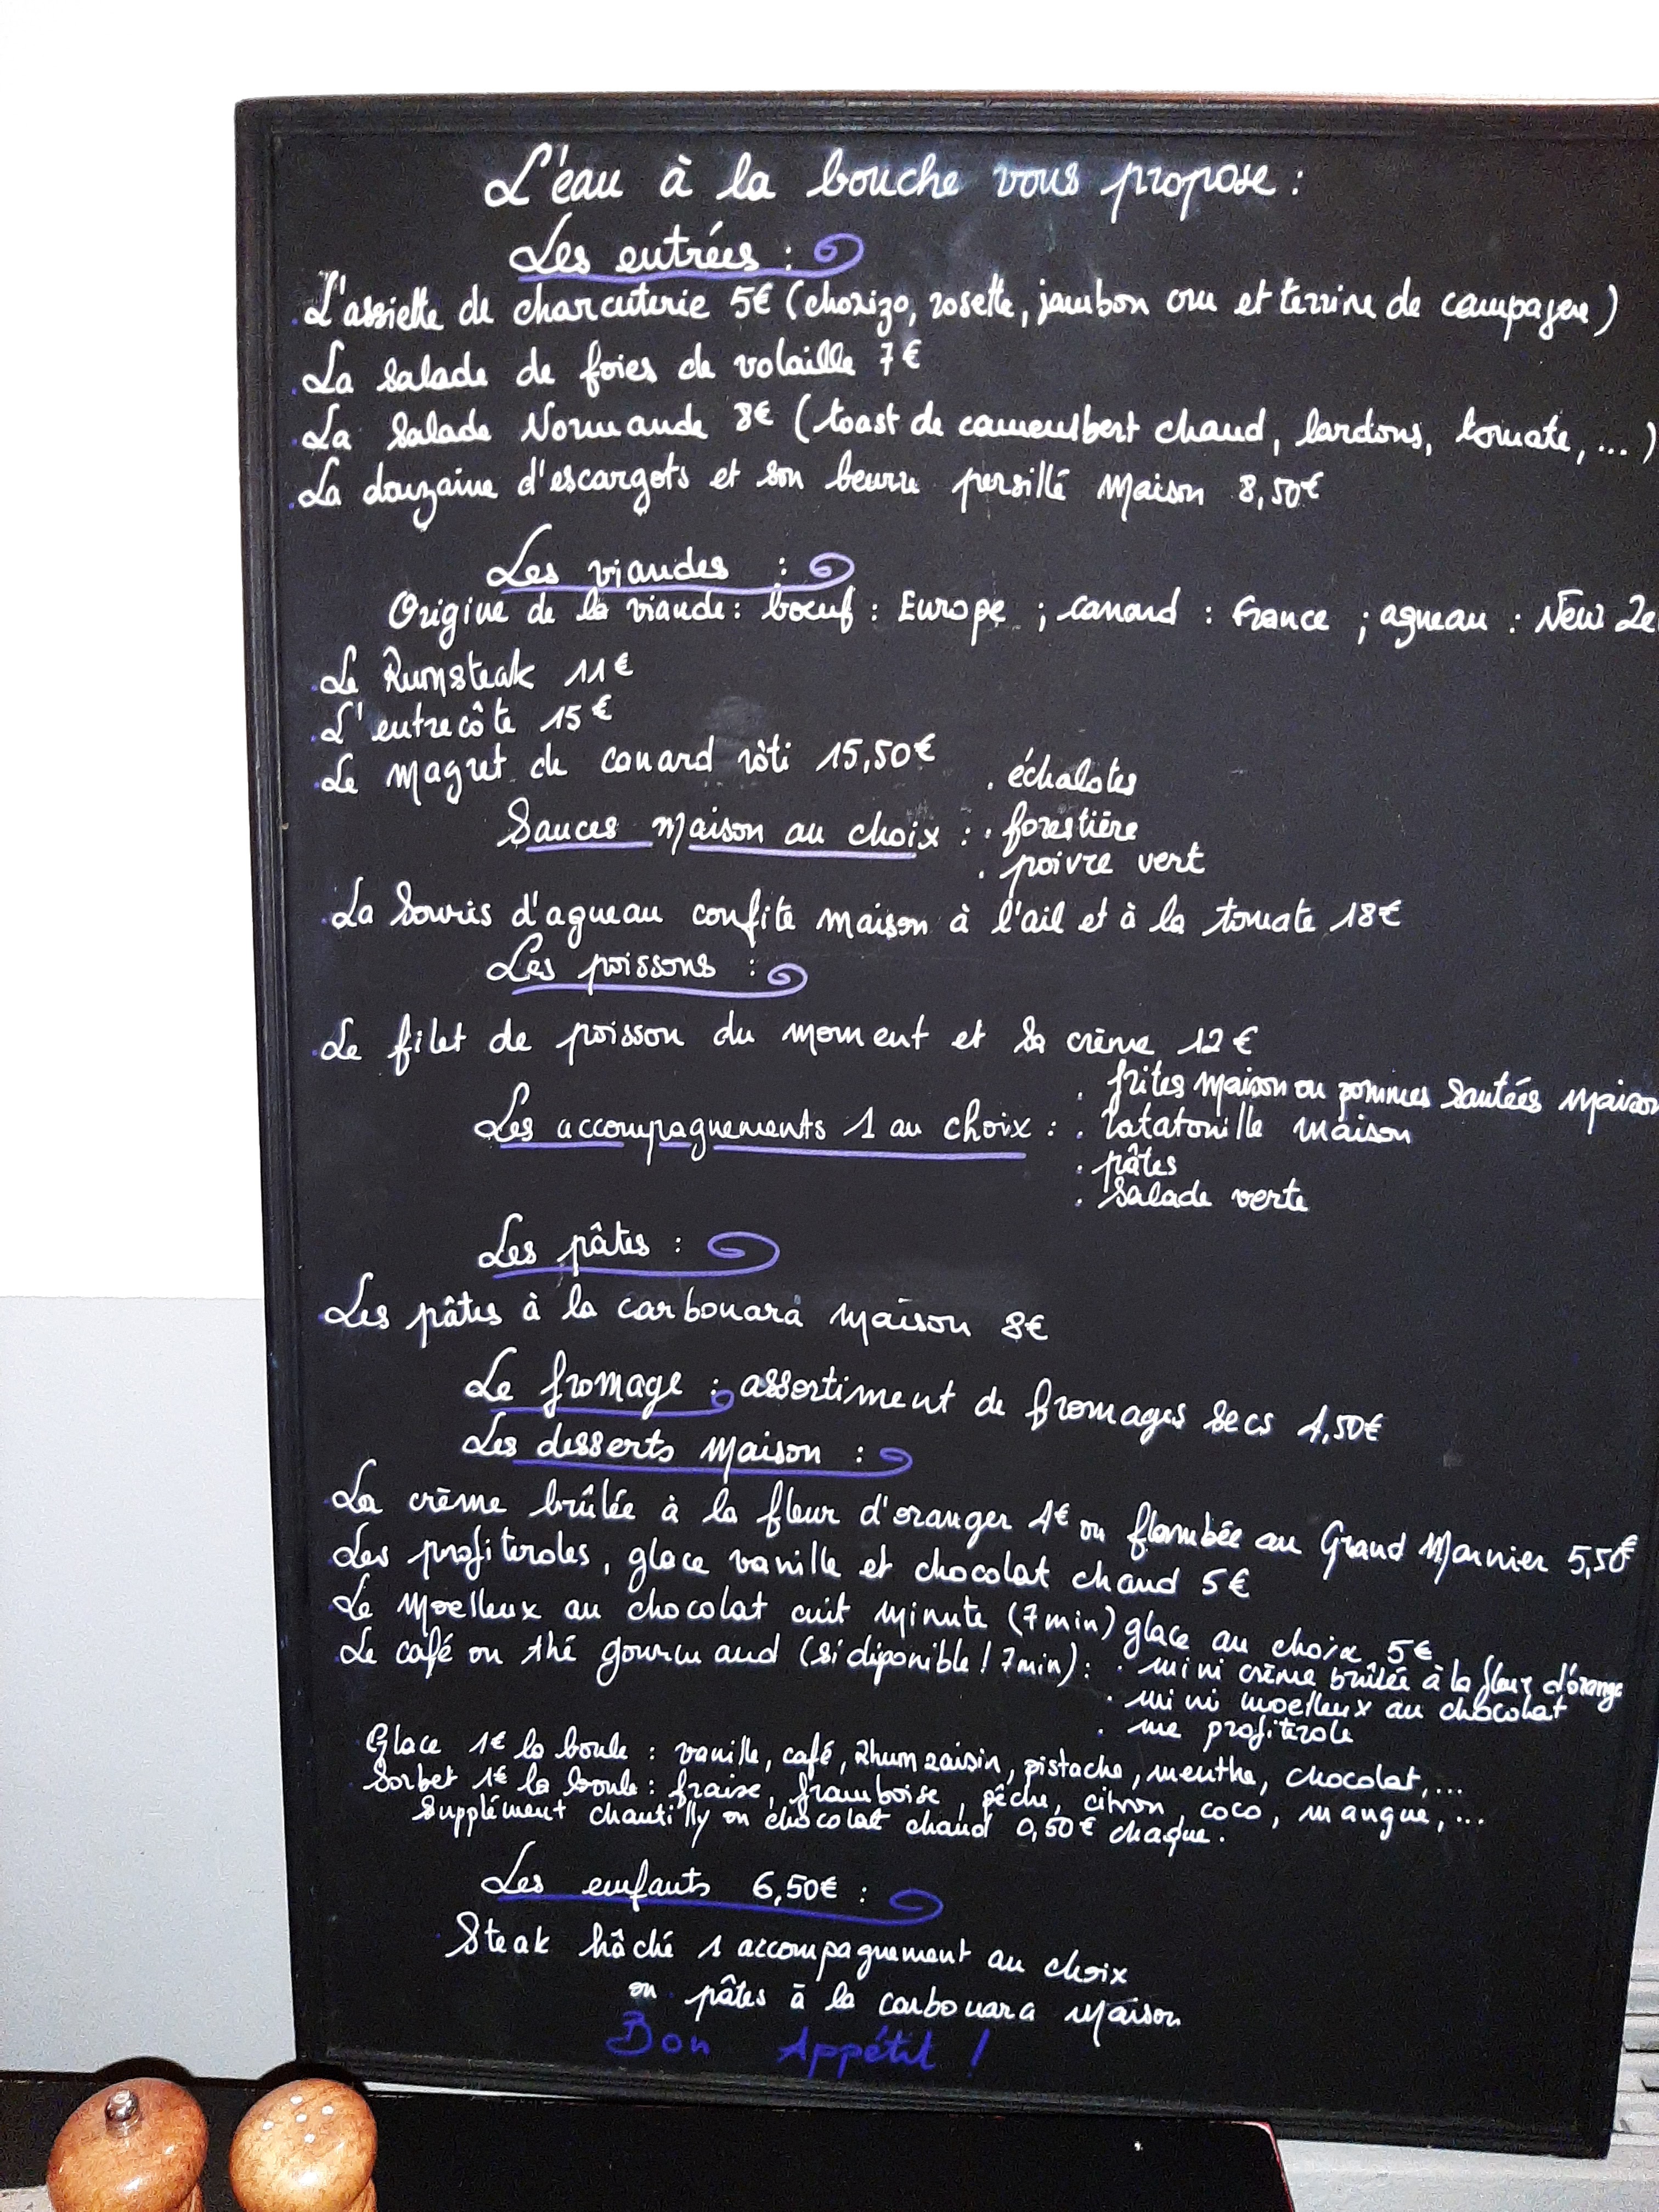 L'eau à la bouche vous propose :
Les entrées :
. L'assiette de charcuterie 5€ (chorizo, rosette, jambon cru et terrine de campagne)
. La salade de foies de volaille 7€
. La salade Normande 8€ (toast de camembert chaud, lardons, tomate, ...)
. La douzaine d'escargots et son beurre persillé maison 8,50€
Les viandes :
Origine de la viande : boeuf : Europe ; canard : France ; agneau : New Ze
. Le Rumsteak 11€
. L'entrecôte 15€
. Le magret de canard rôti 15,50€
. échalotes
Sauces maison au choix : . forestière
. poivre vert
. La souris d'agneau confite maison à l'ail et à la tomate 18€
Les poissons :
. Le filet de poisson du moment et sa crème 12€
. frites maison ou pommes sautées maison
Les accompagnements 1 au choix : . ratatouille maison
. pâtes
. salade verte
Les pâtes :
. Les pâtes à la carbonara maison 8€
Le fromage : assortiment de fromages secs 1,50€
Les desserts maison :
. La crème brûlée à la fleur d'oranger 4€ ou flambée au Grand Marnier 5,50€
. Les profiteroles, glace vanille et chocolat chaud 5€
. Le moelleux au chocolat cuit minute (7min) glace au choix 5€
. Le café ou thé gourmand (si diponible ! 7min) : . mini crème brûlée à la fleur d'orange
. mini moelleux au chocolat
. une profiterole
Glace 1€ la boule : vanille, café, Rhum raisin, pistache, menthe, chocolat, ...
Sorbet 1€ la boule : fraise, framboise, pêche, citron, coco, mangue, ...
Supplément chantilly ou chocolat chaud 0,50€ chaque.
Les enfants 6,50€ :
Steak hâché 1 accompagnement au choix
ou pâtes à la carbonara maison
Bon Appétit !